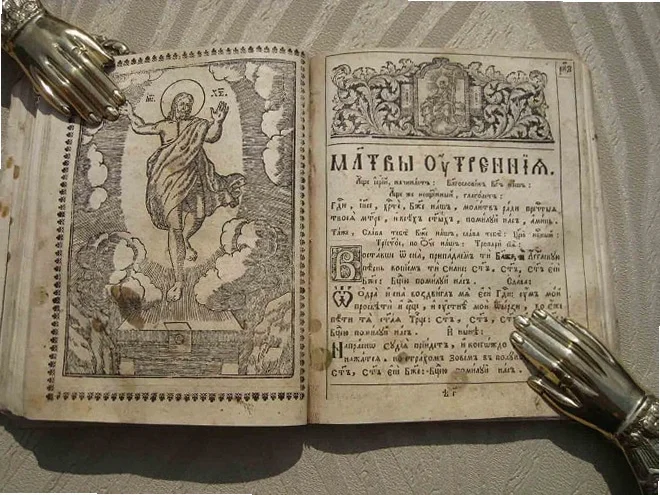 ІИС. ХС.
МЛТВЫ ОУТРЕННІѦ.
Аще іерей, начинаетъ: Благословенъ Бгъ нашъ:
Аще же глаголетъ:
Гди, Іисе, Бже нашъ, молитвъ ради пречтыѧ
твоеѧ мтре, и всѣхъ стыхъ, помилуй насъ, аминь.
Таже, Слава тебѣ Бже нашъ, слава тебѣ: Црю нбный:
Трістое, по Оче нашъ: Тропари сїѧ:
Воставше Ѿ сна, припадаемъ ти Блаже, и Агглскую
пѣснь вопіемъ ти силне Стъ, Стъ, Стъ еси
Бже: Бцею помилуй насъ. Слава:
Ѿ одра и сна воздвиглъ мѧ еси Гди: умъ мой
просвѣти и срце, и устнѣ мои Ѿверзи, во еже
пѣти тѧ стаѧ Трце: Стъ, Стъ,
Бцею помилуй насъ. И нынѣ:
Напрасно судіѧ прїидетъ, и коегождо
но страхомъ зовемъ въ
Стъ, Стъ еси Бже: Бцею помилуй насъ.